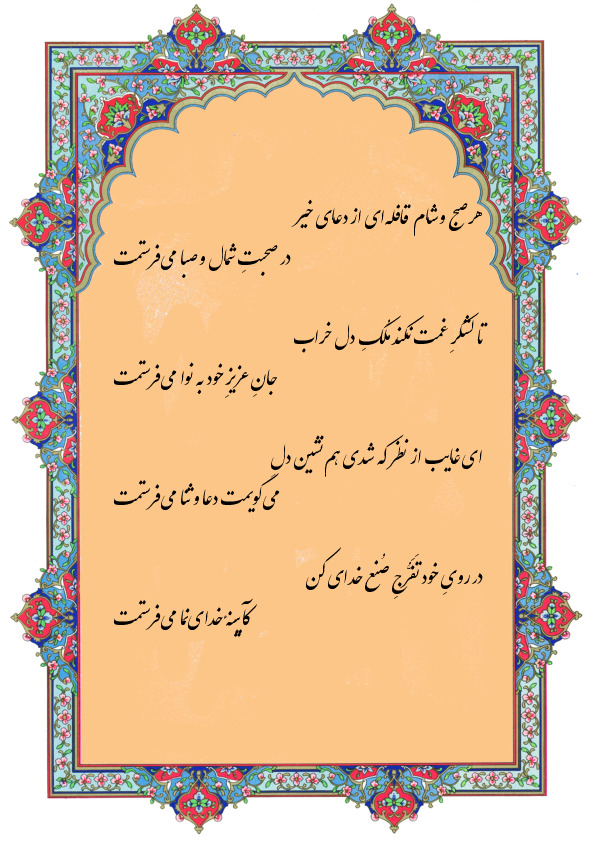 هر صبح و شام قافله‌ای از دعای خیر
در صحبتِ شمال و صبا می‌فرستمت
تا لشکرِ غمت نکند مُلکِ دل خراب
جانِ عزیزِ خود به نوا می‌فرستمت
ای غایب از نظر که شدی هم نشین دل
می‌گویمت دعا و ثنا می‌فرستمت
در رویِ خود تَفَرُّجِ صُنعِ خدای کن
کآیینهٔ خدای نما می‌فرستمت